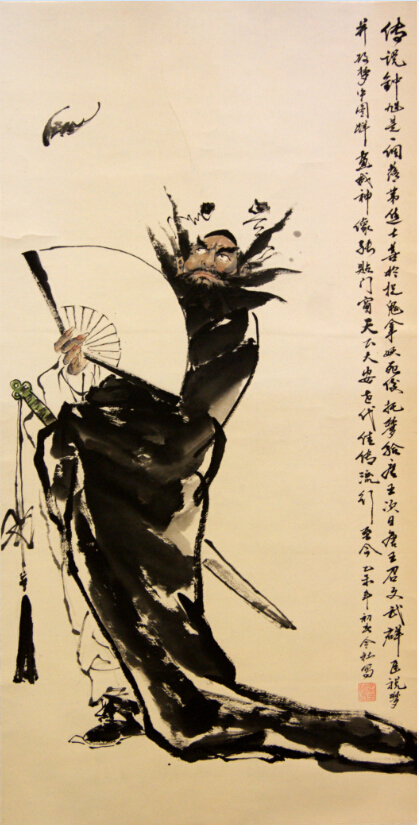 传说钟馗是一个落第进士善於捉鬼拿妖死後托梦给唐王次日唐王召文武群臣说梦
并梦中图画成神像张贴门窗天下大安古代佳传流行至今乙未年初写